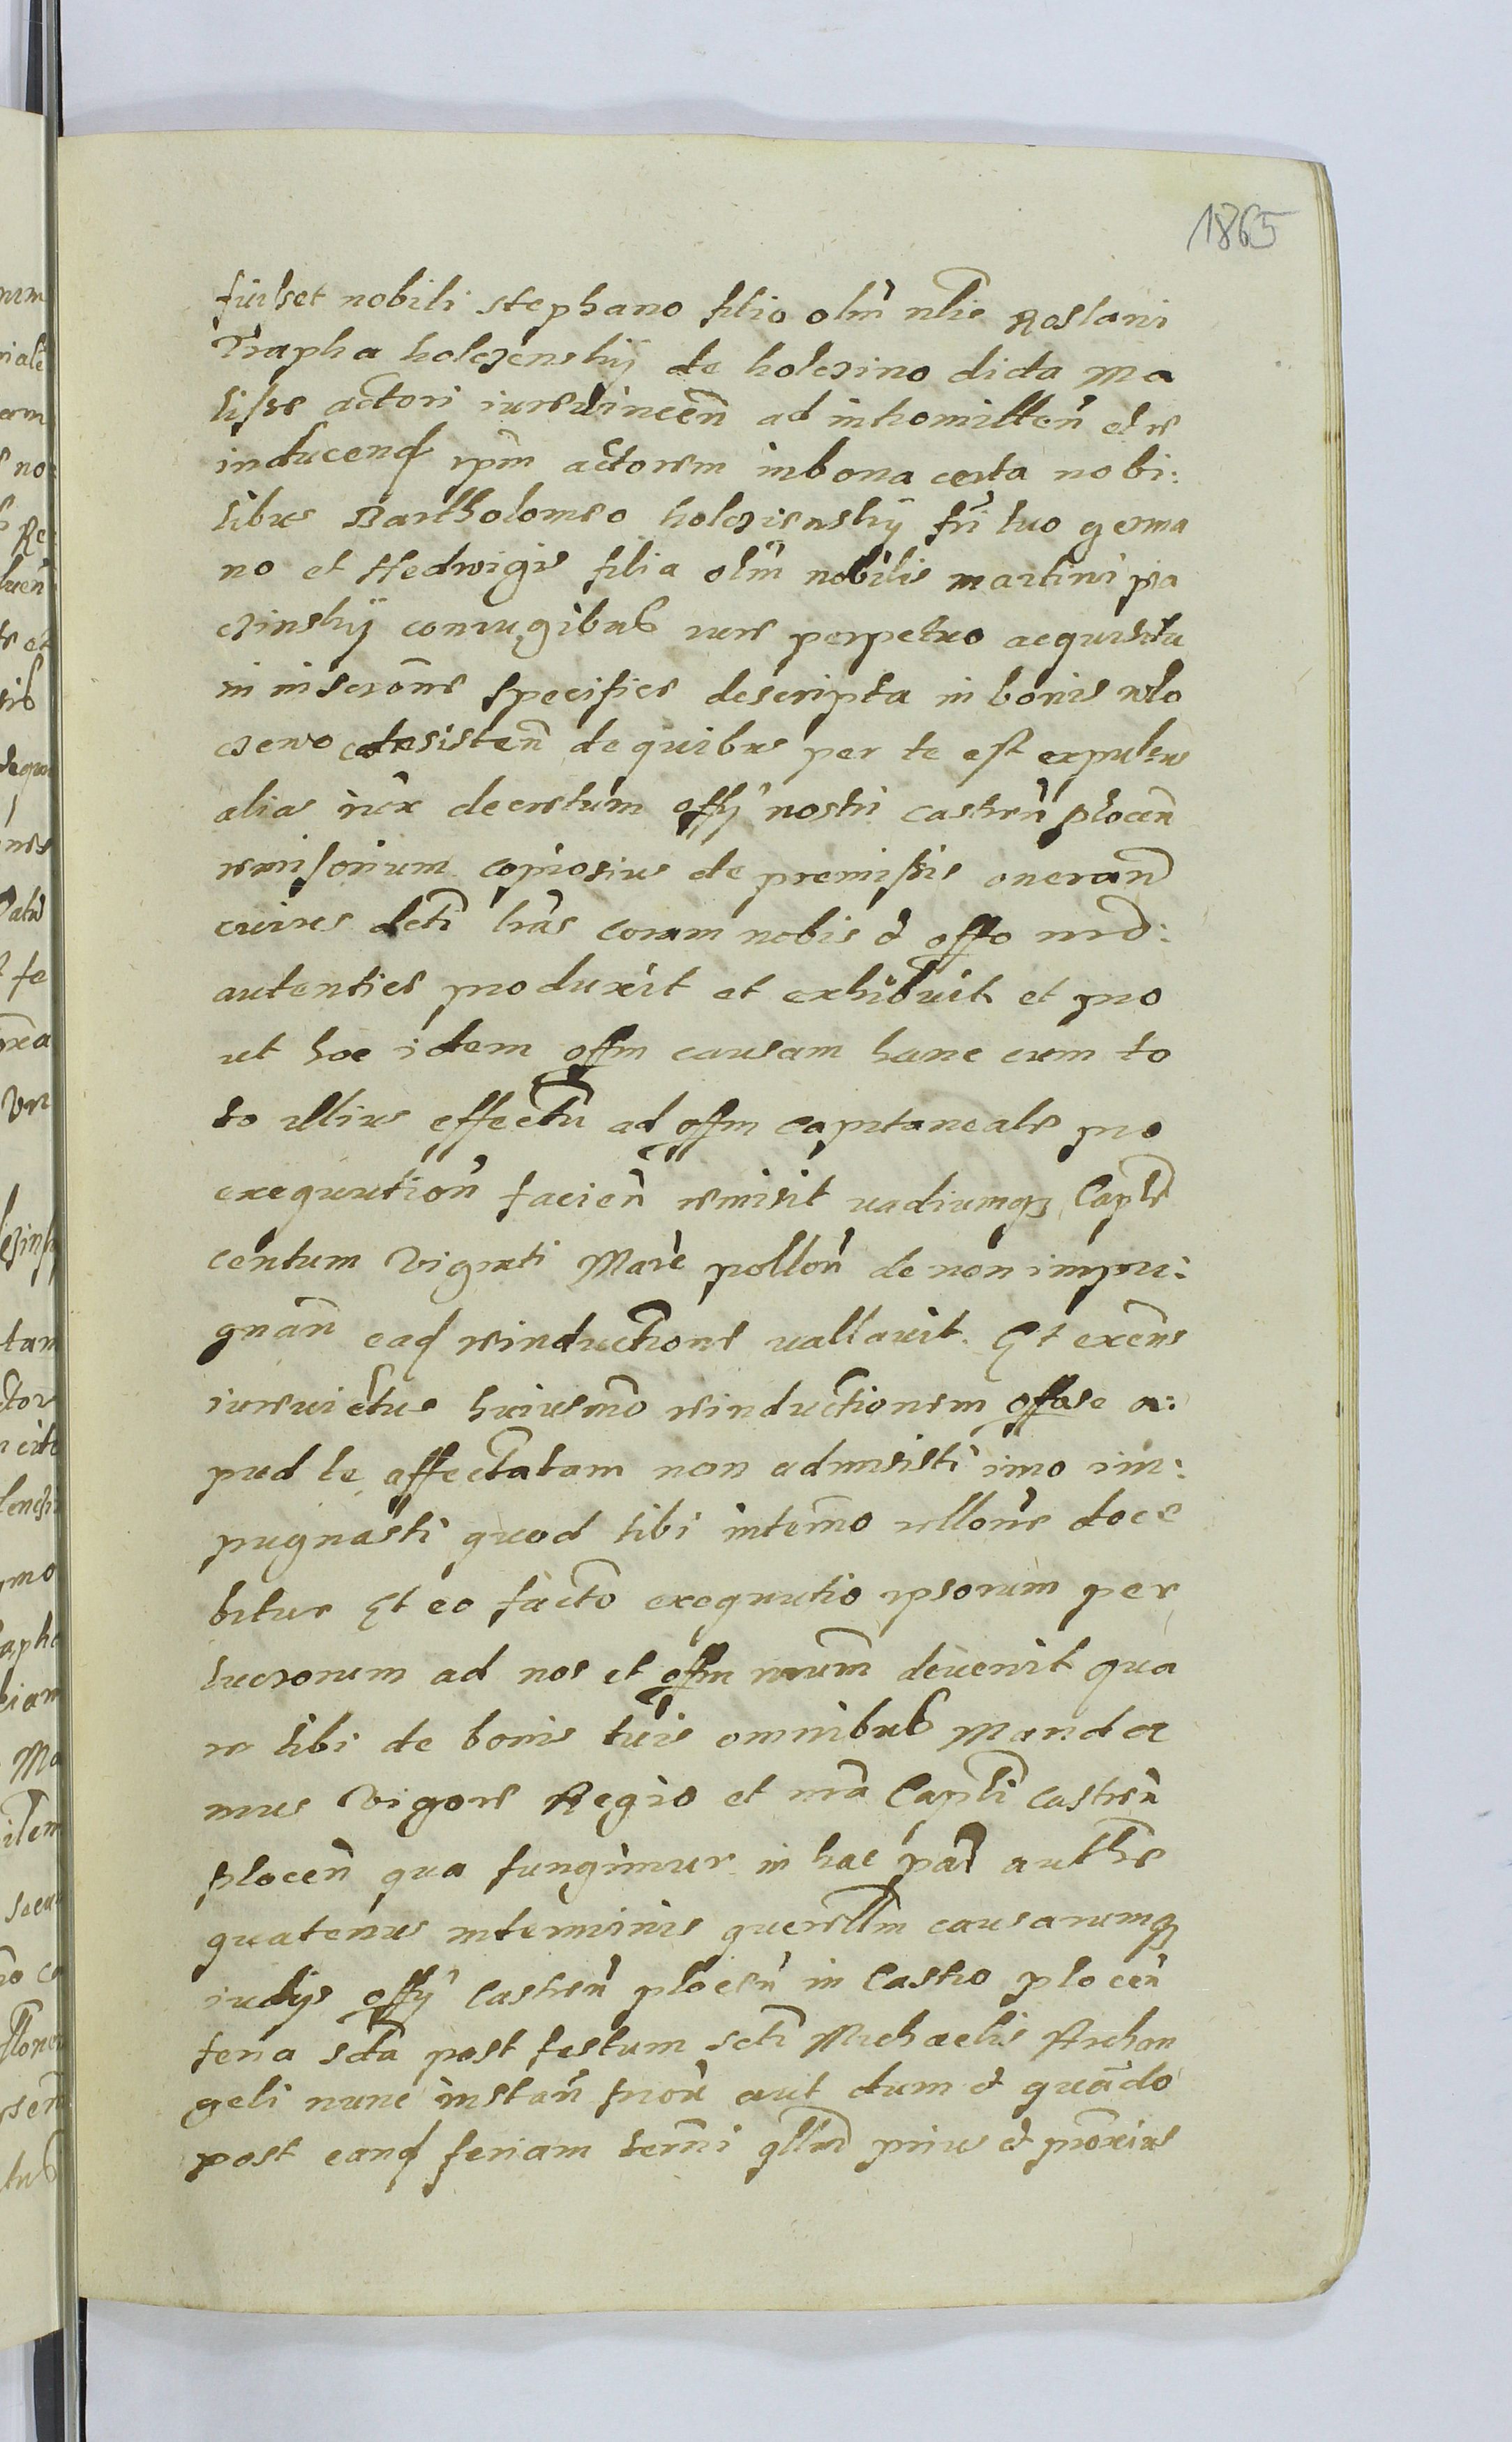 1865
fuisset nobili stephano filio olim nlis Roslani
Trapha holczenskij de holczino dicta Ma
lisse actori iurevincen ad intromitten et re
inducend ipm actorem inbona certa nobi:
libus Bartholomeo holczienskij fri tuo germa
no et Hedwigis filia olim nobilis martini pra
czinskij coniugibus iure perpetuo acquisita
in inscrone specifice descripta in bonis wlo
czewo consisten de quibus per te est expulsus
alias iux decretum offij nostri castren plocen
remissorium copiosius de premissis oneran
cuius dcti lras coram nobis et offo nro:
autentice produxit et exhibuit et pro
ut hoc idem offm causam hanc cum to
to illius effectu ad offm capitaneale pro
exequution facien remisit vadiumq Caple
centum viginti Marc pollon de non impu:
gnan ead reinductione vallavit. Et existens
iurevictus huiusmo reinductionem offose a:
pud te affectatam non admisisti imo im:
pugnasti quod tibi intermo ullone doce
bitur Et eo facto exequutio ipsorum per
lucrorum ad nos et offm nrum devenit qua
re tibi de bonis tuis omnibus Manda
mus Vigore Regio et nra Capli castren
plocen qua fungimur in hac par authe
quatenus interminis querellm causarumq
iudijs offij Castren plocen in Castro plocen
feria scda post festum scti Michaelis Archan
geli nunc instan fron aut dum et quando
post eand feriam termi qllm prius et proxius